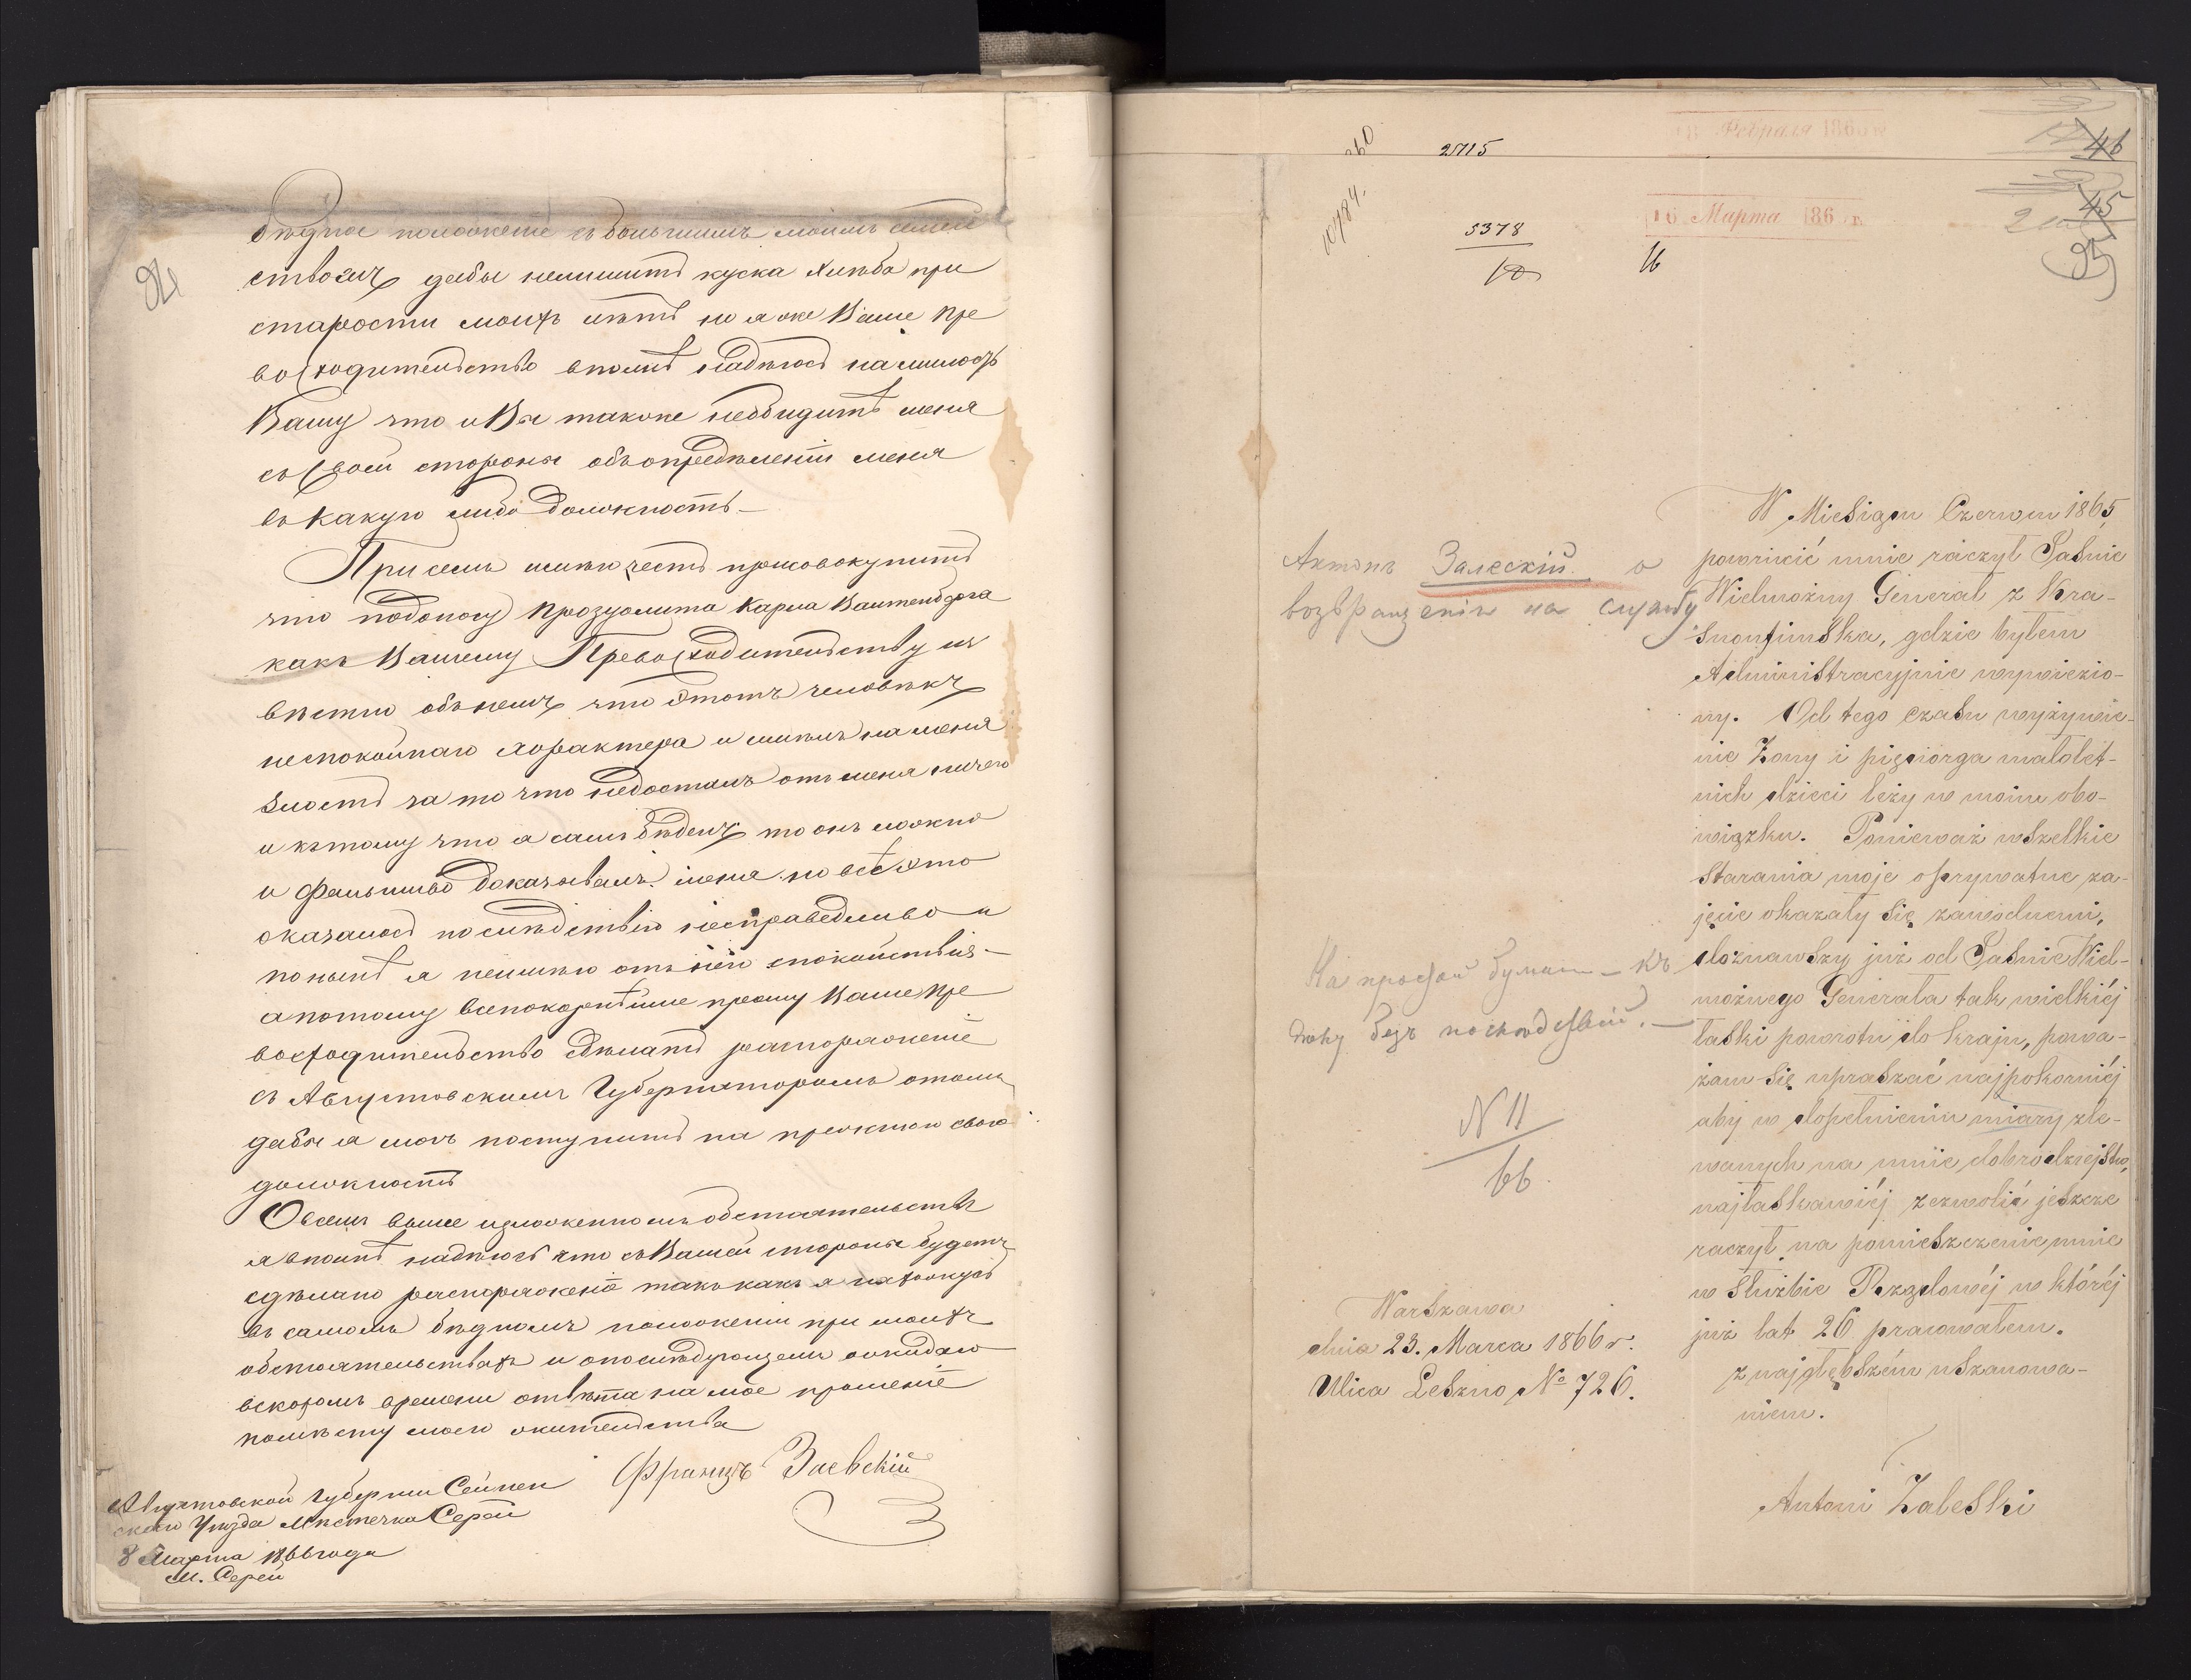 бѣдное положеніе съ большимъ моимъ семей
ствомъ дабы нелишитъ куска хлѣба при
старости моихъ лѣтъ но я же Ваше Пре
восходительство вполнѣ надѣюсь на милость
Вашу что и Вы также необидитѣ меня
съ своей стороны объ опредѣленіи меня
въ какую либо должность —
При семъ имѣю честь присовокупить
что подоносу Прозуолита Карла
какъ Вашему Превосходительству из
вѣстно объ немъ что этотъ человѣкъ
неспокойнаго характера и имѣлъ на меня
злость за то что недосталъ отъ меня ничего
и къ тому что я самъ бѣденъ то онъ можно
и фальшиво доказывалъ на меня но всё это
оказалось послѣдствію несправедливо и
понынѣ я неимѣю отъ него спокойствія —
а потому всепокорнѣйше прошу Ваше Пре
восходительство сдѣлать распоряженіе
съ Августовскимъ Губернаторомъ о томъ
дабы я могъ поступить на прежнюю свою
должность
О всемъ выше изложенномъ обстоятельствѣ
я вполнѣ надѣюсь что съ Вашей стороны будетъ
сдѣлано распоряженіе такъ какъ я нахожусь
въ самомъ бѣдномъ положеніи при моихъ
обстоятельствахъ и о послѣдующемъ ожидаю
вскоромъ времени отвѣта на моё прошеніе
помѣсту моего жительства
Францъ Заевскій
Августовской Губерніи Сейнен
скаго Уѣзда Мѣстечка Серей
8 Марта 1866 года
М. Серей
360
2515
Февраля 186
46
10784.
5378
10
16
16 Марта 186
45
35
Антонъ Залескій о
возвращеніи на службу
W Miesiącu Czerwcu 1865
powrócić mnie raczył Jaśnie
Wielmożny Generał z Kra-
snoufimska, gdzie byłem
Administracyjnie wywiezio-
ny. Od tego czasu wyżywie-
nie Żony i pięciorga małolet-
nich dzieci leży w moim obo-
wiązku. Ponieważ wszelkie
starania moje o prywatne za-
jęcie okazały się zawodnemi,
doznawszy już od Jaśnie Wiel-
możnego Generała tak wielkiéj
łaski powrotu do kraju, powa-
żam się upraszać najpokorniéj
aby w dopełnieniu miary zle-
wanych na mnie dobrodziejstw,
najłaskawiéj zezwolić jeszcze
raczył na pomieszczenie mnie
w Służbie Rządowéj w któréj
już lat 26 pracowałem.
z najgłębszém uszanowa-
niem.
Antoni Zaleski
На простой бумагѣ — къ
дѣлу безъ послѣдствій. —
N 11
66
Warszawa
dnia 23. Marca 1866 r.
Ulica Leszno № 726.